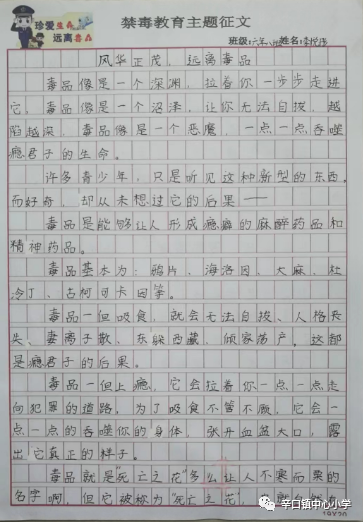 珍爱生命
远离毒品
禁毒教育主题征文
班级:六年八班 姓名:李悦洋
风华正茂，远离毒品
毒品像是一个深渊，拉着你一步步走进
它，毒品像是一个沼泽，让你无法自拔，越
陷越深，毒品像是一个恶魔，一点一点吞噬
瘾君子的生命。
许多青少年，只是听见这种新型的东西，
而好奇，却从未想过它的后果——
毒品是能够让人形成瘾癖的麻醉药品和
精神药品。
毒品基本为：鸦片、海洛因，大麻，杜
冷丁、古柯可卡因等。
毒品一但吸食，就会无法自拔、人格丢
失、妻离子散、东躲西藏，倾家荡产。这都
是瘾君子的后果。
毒品一但上瘾，它会拉着你一点一点走
向犯罪的道路，为了吸食不管不顾，它会一
点一点的吞噬你的身体，张开血盆大口，露
出它真正的样子。
毒品就是"死亡之花"多么让人不寒而栗的
名字啊，但它被称为"死亡之花"
辛口镇中心小学